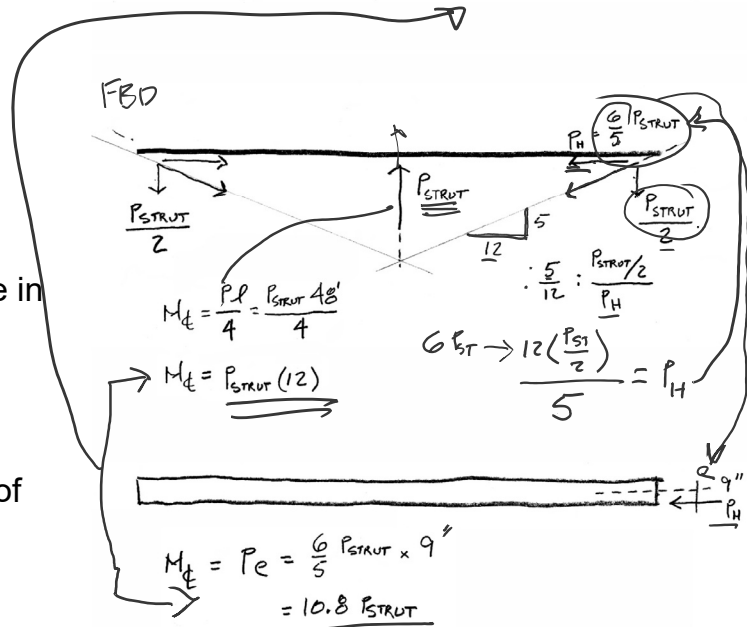 FBD
P_H = 6/5 P_STRUT
P_STRUT/2
P_STRUT
P_STRUT/2
5
12
e in
M_℄ = Pl/4 = P_STRUT 48'/4
∴ 5/12 : P_STRUT/2 / P_H
M_℄ = P_STRUT (12)
6 P_ST → 12(P_ST/2)/5 = P_H
of
e 9"
P_H
M_℄ = Pe = 6/5 P_STRUT x 9"
= 10.8 P_STRUT